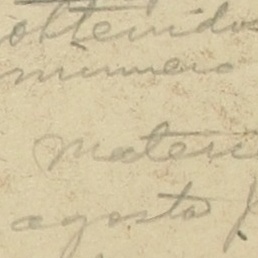 obtenidos
numero
Materi
agosto